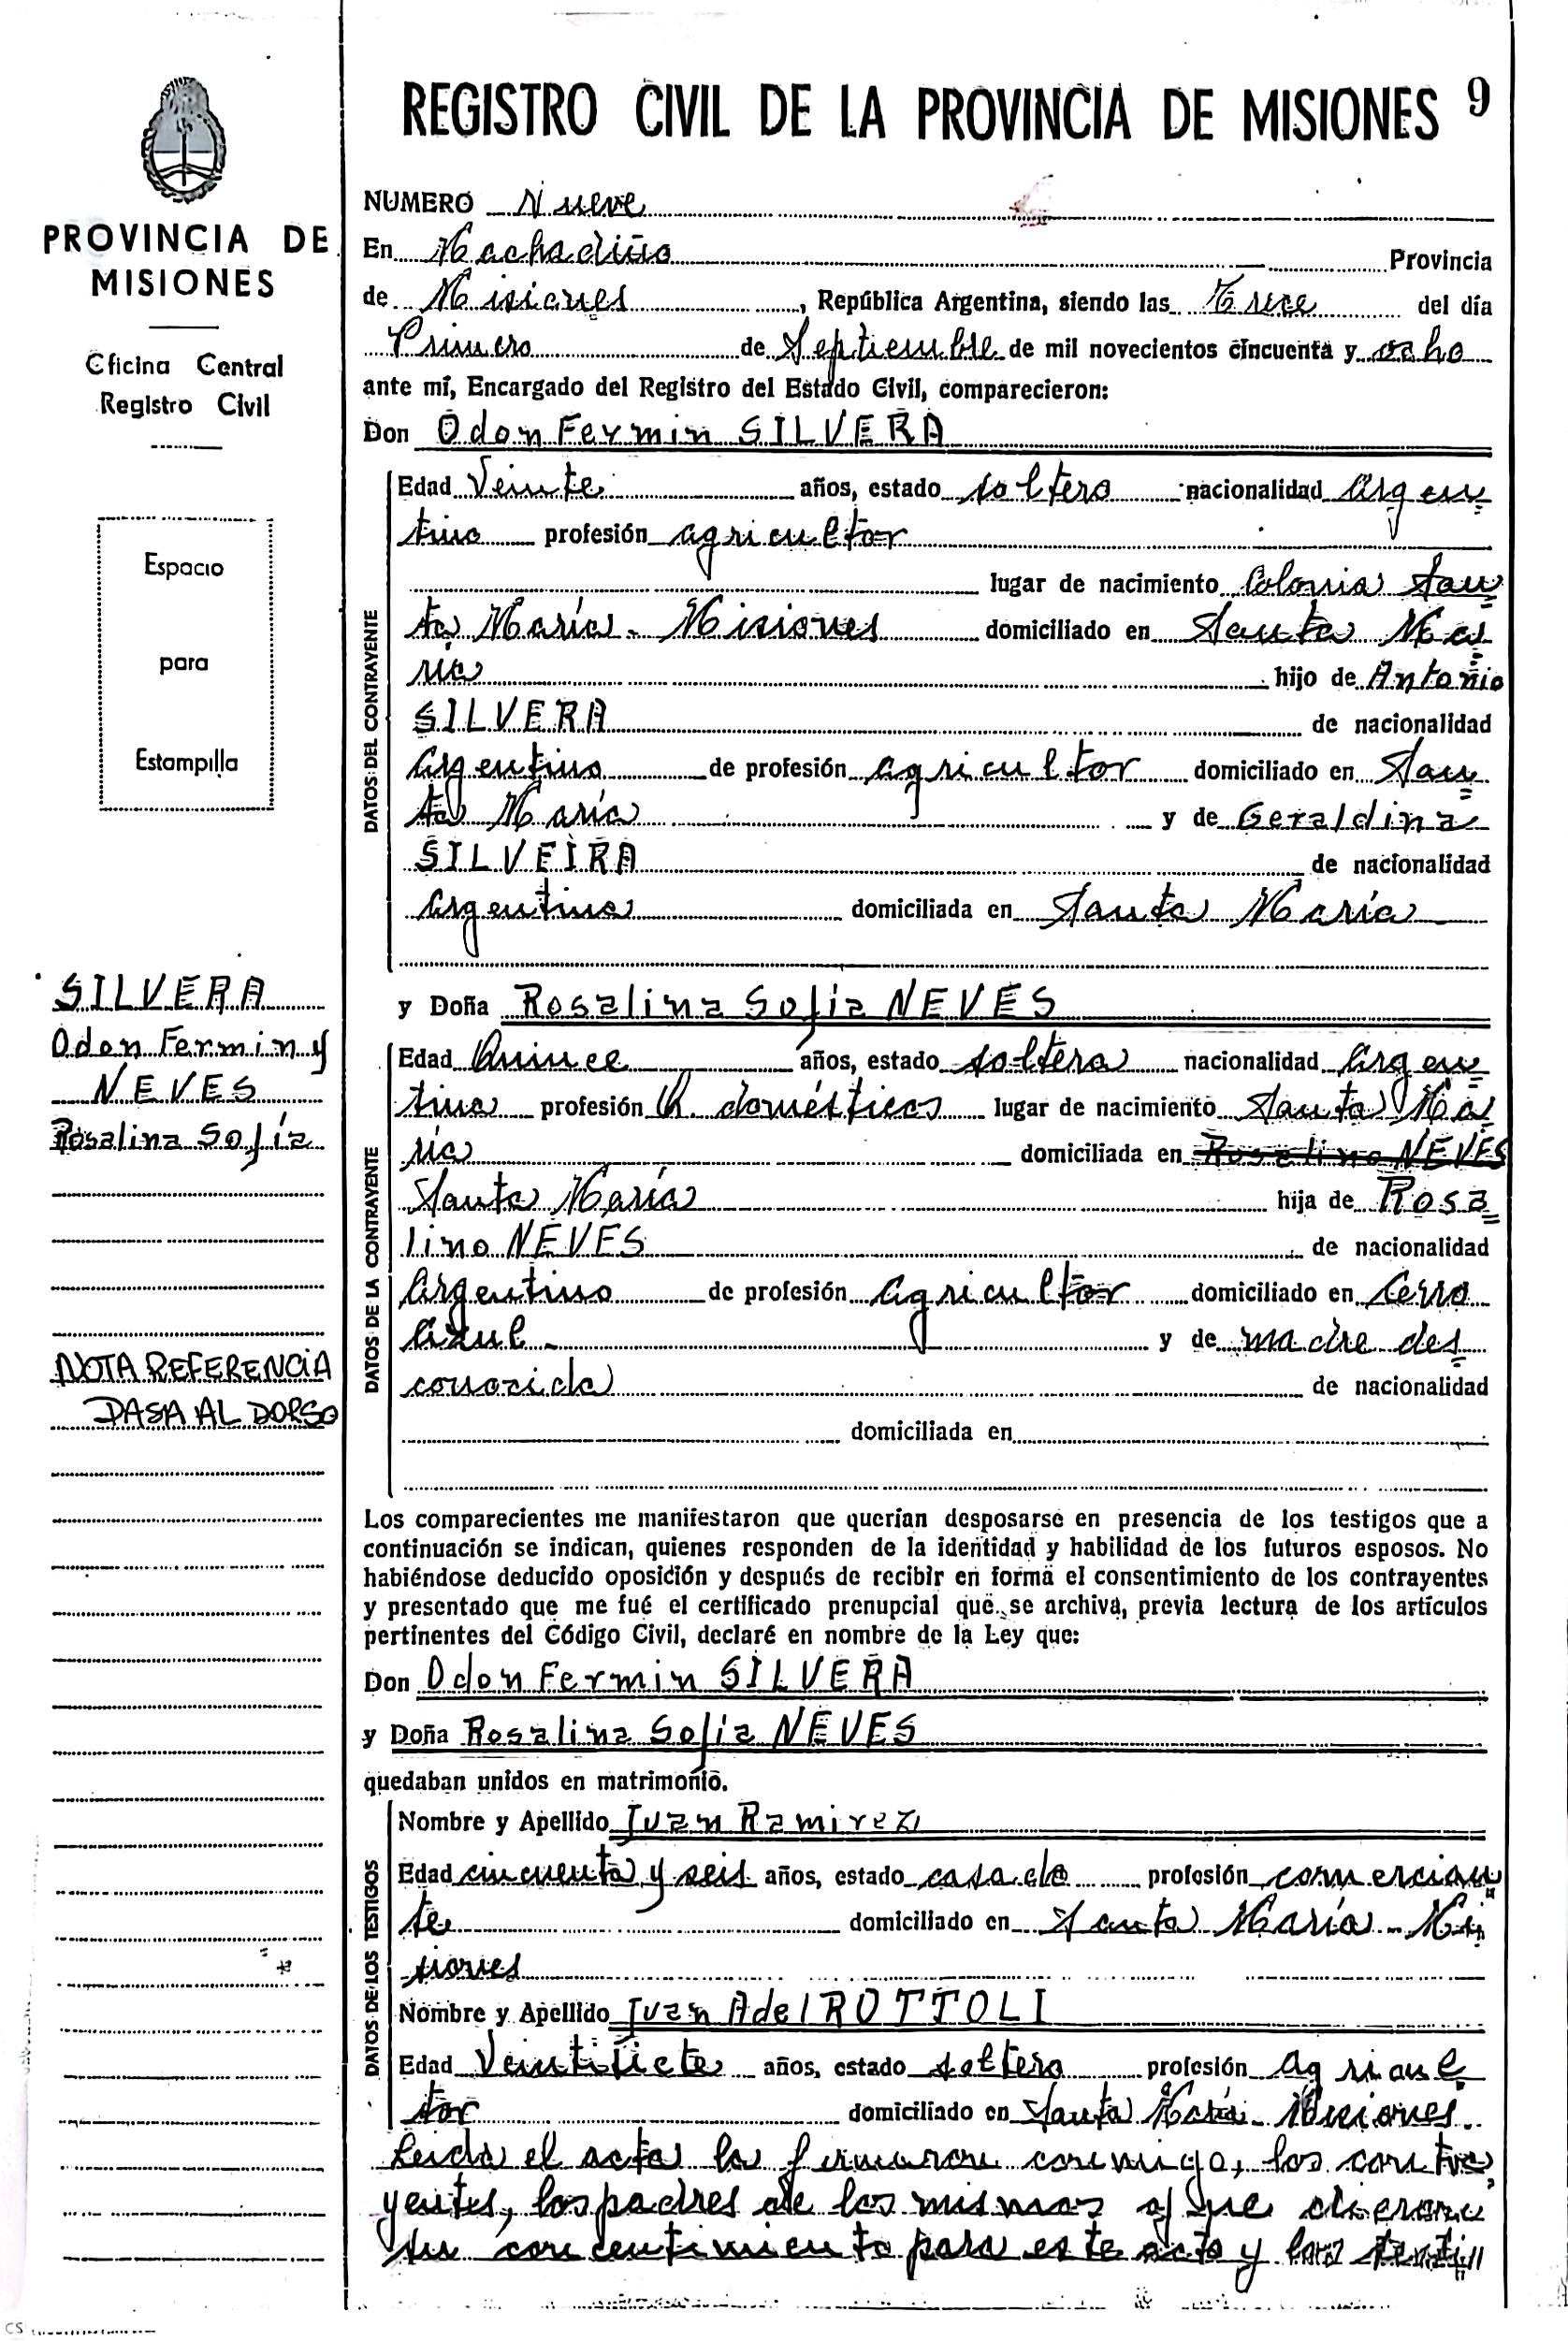 REGISTRO CIVIL DE LA PROVINCIA DE MISIONES 9
PROVINCIA DE
MISIONES
Oficina Central
Registro Civil
Espacio
para
Estampilla
SILVERA
Odon Fermin y
NEVES
Rosalina Sofía
NOTA REFERENCIA
PASA AL DORSO
NUMERO Nueve
En Machadiño Provincia
de Misiones, República Argentina, siendo las Trece del día
Primero de Septiembre de mil novecientos cincuenta y ocho
ante mí, Encargado del Registro del Estado Civil, comparecieron:
Don Odon Fermin SILVERA
DATOS DEL CONTRAYENTE
Edad Veinte años, estado soltero nacionalidad Argen
tino profesión agricultor
lugar de nacimiento Colonia San
ta María - Misiones domiciliado en Santa Ma
ría hijo de Antonio
SILVERA de nacionalidad
Argentino de profesión agricultor domiciliado en San
ta María y de Geraldina
SILVEIRA de nacionalidad
Argentina domiciliada en Santa María
y Doña Rosalina Sofia NEVES
DATOS DE LA CONTRAYENTE
Edad Quince años, estado soltera nacionalidad Argen
tina profesión Q. domésticos lugar de nacimiento Santa Ma
ría domiciliada en Rosalino NEVES
Santa María hija de Rosa
lino NEVES de nacionalidad
Argentino de profesión agricultor domiciliado en Cerro
Azul - y de madre des
conocida de nacionalidad
domiciliada en
Los comparecientes me manifestaron que querían desposarse en presencia de los testigos que a
continuación se indican, quienes responden de la identidad y habilidad de los futuros esposos. No
habiéndose deducido oposición y después de recibir en forma el consentimiento de los contrayentes
y presentado que me fué el certificado prenupcial que se archiva, previa lectura de los artículos
pertinentes del Código Civil, declaré en nombre de la Ley que:
Don Odon Fermin SILVERA
y Doña Rosalina Sofia NEVES
quedaban unidos en matrimonio.
DATOS DE LOS TESTIGOS
Nombre y Apellido Juan Ramirez
Edad cincuenta y seis años, estado casado profesión comercian
te domiciliado en Santa María - Mi
siones
Nombre y Apellido Juan Adel ROTTOLI
Edad Veintisiete años, estado soltero profesión agricul
tor domiciliado en Santa María - Misiones.
Leida el acta la firmaron conmigo, los contra
yentes, los padres de los mismos q' que dieron
su concentimiento para este acto y los testi
CS